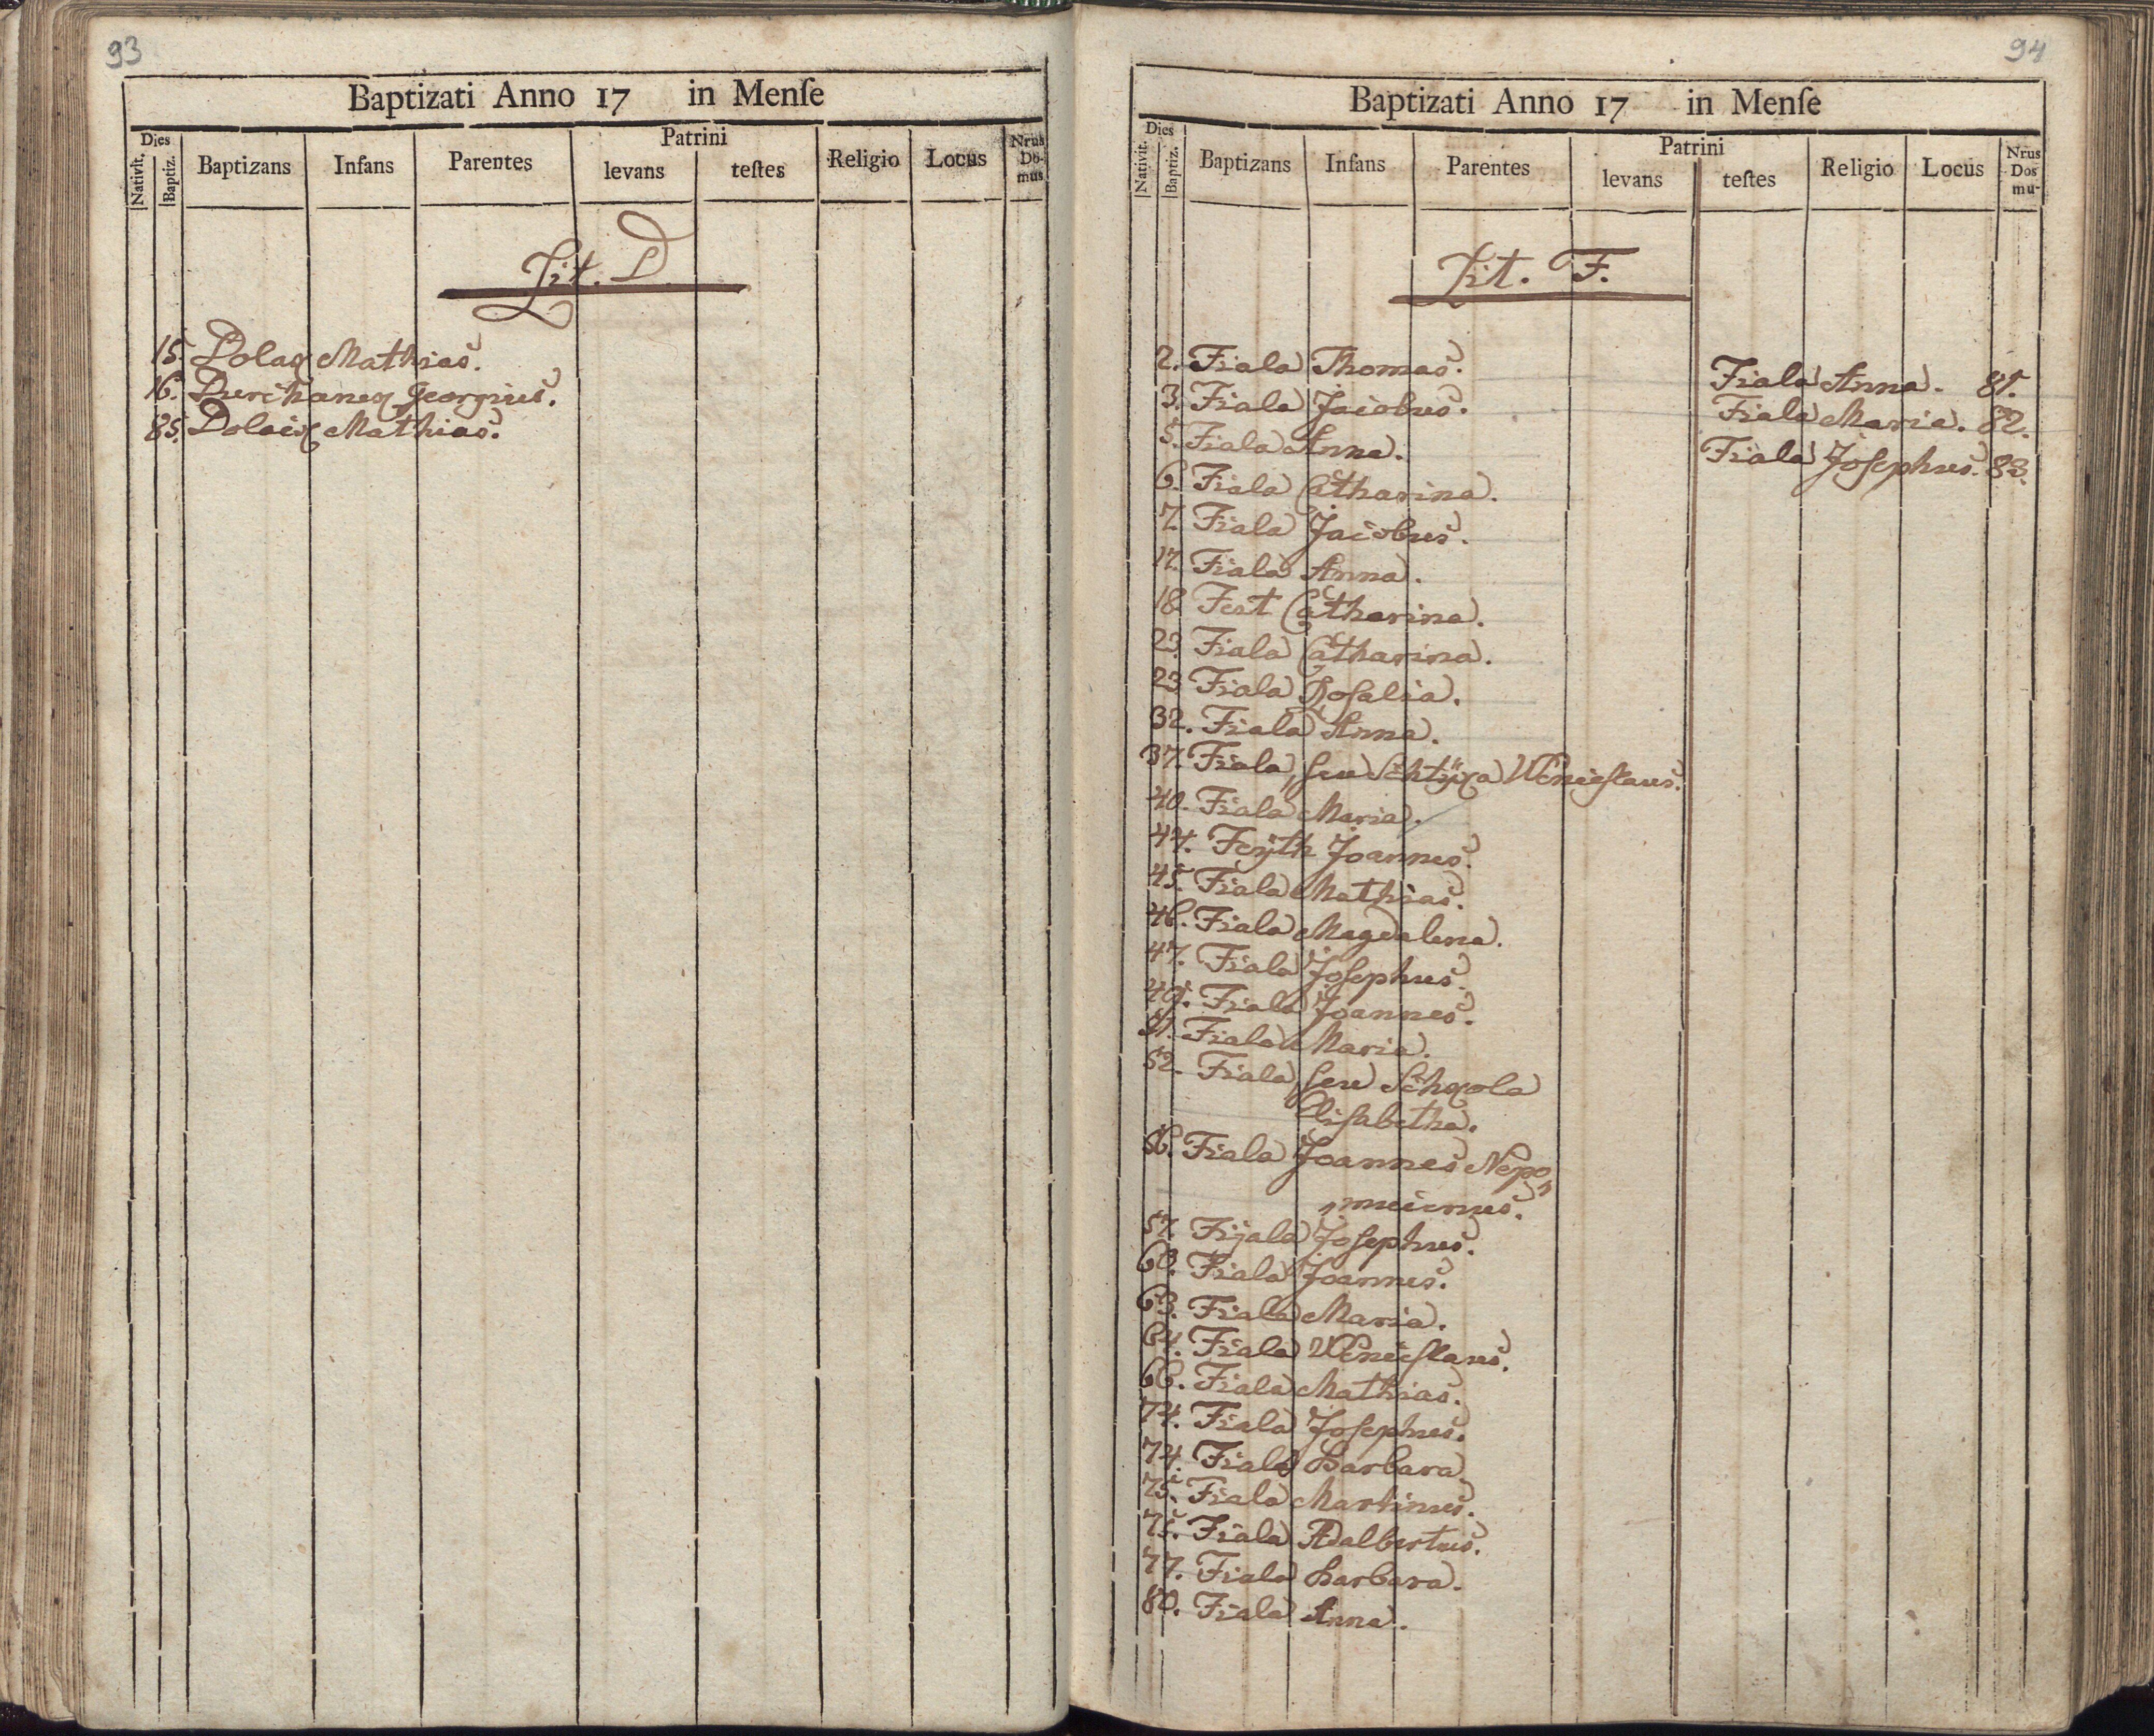 93
Baptizati Anno 17 in Menſe
Dies
Nativit.
Baptiz.
Baptizans
Infans
Parentes
Patrini
levans
teſtes
Religio
Locus
Nrus
Do-
mus
Lit. D
15. Dolaq Mathias.
16. Georgius.
85. Mathias.
94
Baptizati Anno 17 in Menſe
Dies
Nativit.
Baptiz.
Baptizans
Infans
Parentes
Patrini
levans
teſtes
Religio
Locus
Nrus
Dos
mu-
Lit. F.
2. Fiala Thomas.
3. Fiala Jacobus.
5. Fiala Anna.
6. Fiala Catharina.
7. Fiala Jacobus.
17. Fiala Anna.
18. Fest Catharina.
23. Fiala Catharina.
23. Fiala Rosalia.
32. Fiala Anna.
37. Fiala, seu Wenceslaus.
40. Fiala Maria.
44. Feÿth Joannes.
45. Fiala Mathias.
46. Fiala Magdalena.
47. Fiala Josephus.
49. Fiala Joannes.
51. Fiala Maria.
52. Fiala, seu
Elisabetha.
56. Fiala Joannes Nepo
mucenus.
57. Fijala Josephus.
60. Fiala Joannes.
63. Fiala Maria.
64. Fiala Wenceslaus.
66. Fiala Mathias.
74. Fiala Josephus.
74. Fiala Barbara
75. Fiala Martinus.
75. Fiala Adalbertus.
77. Fiala Barbara.
80. Fiala Anna.
Fiala Anna. 81.
Fiala Maria. 82.
Fiala Josephus. 83.